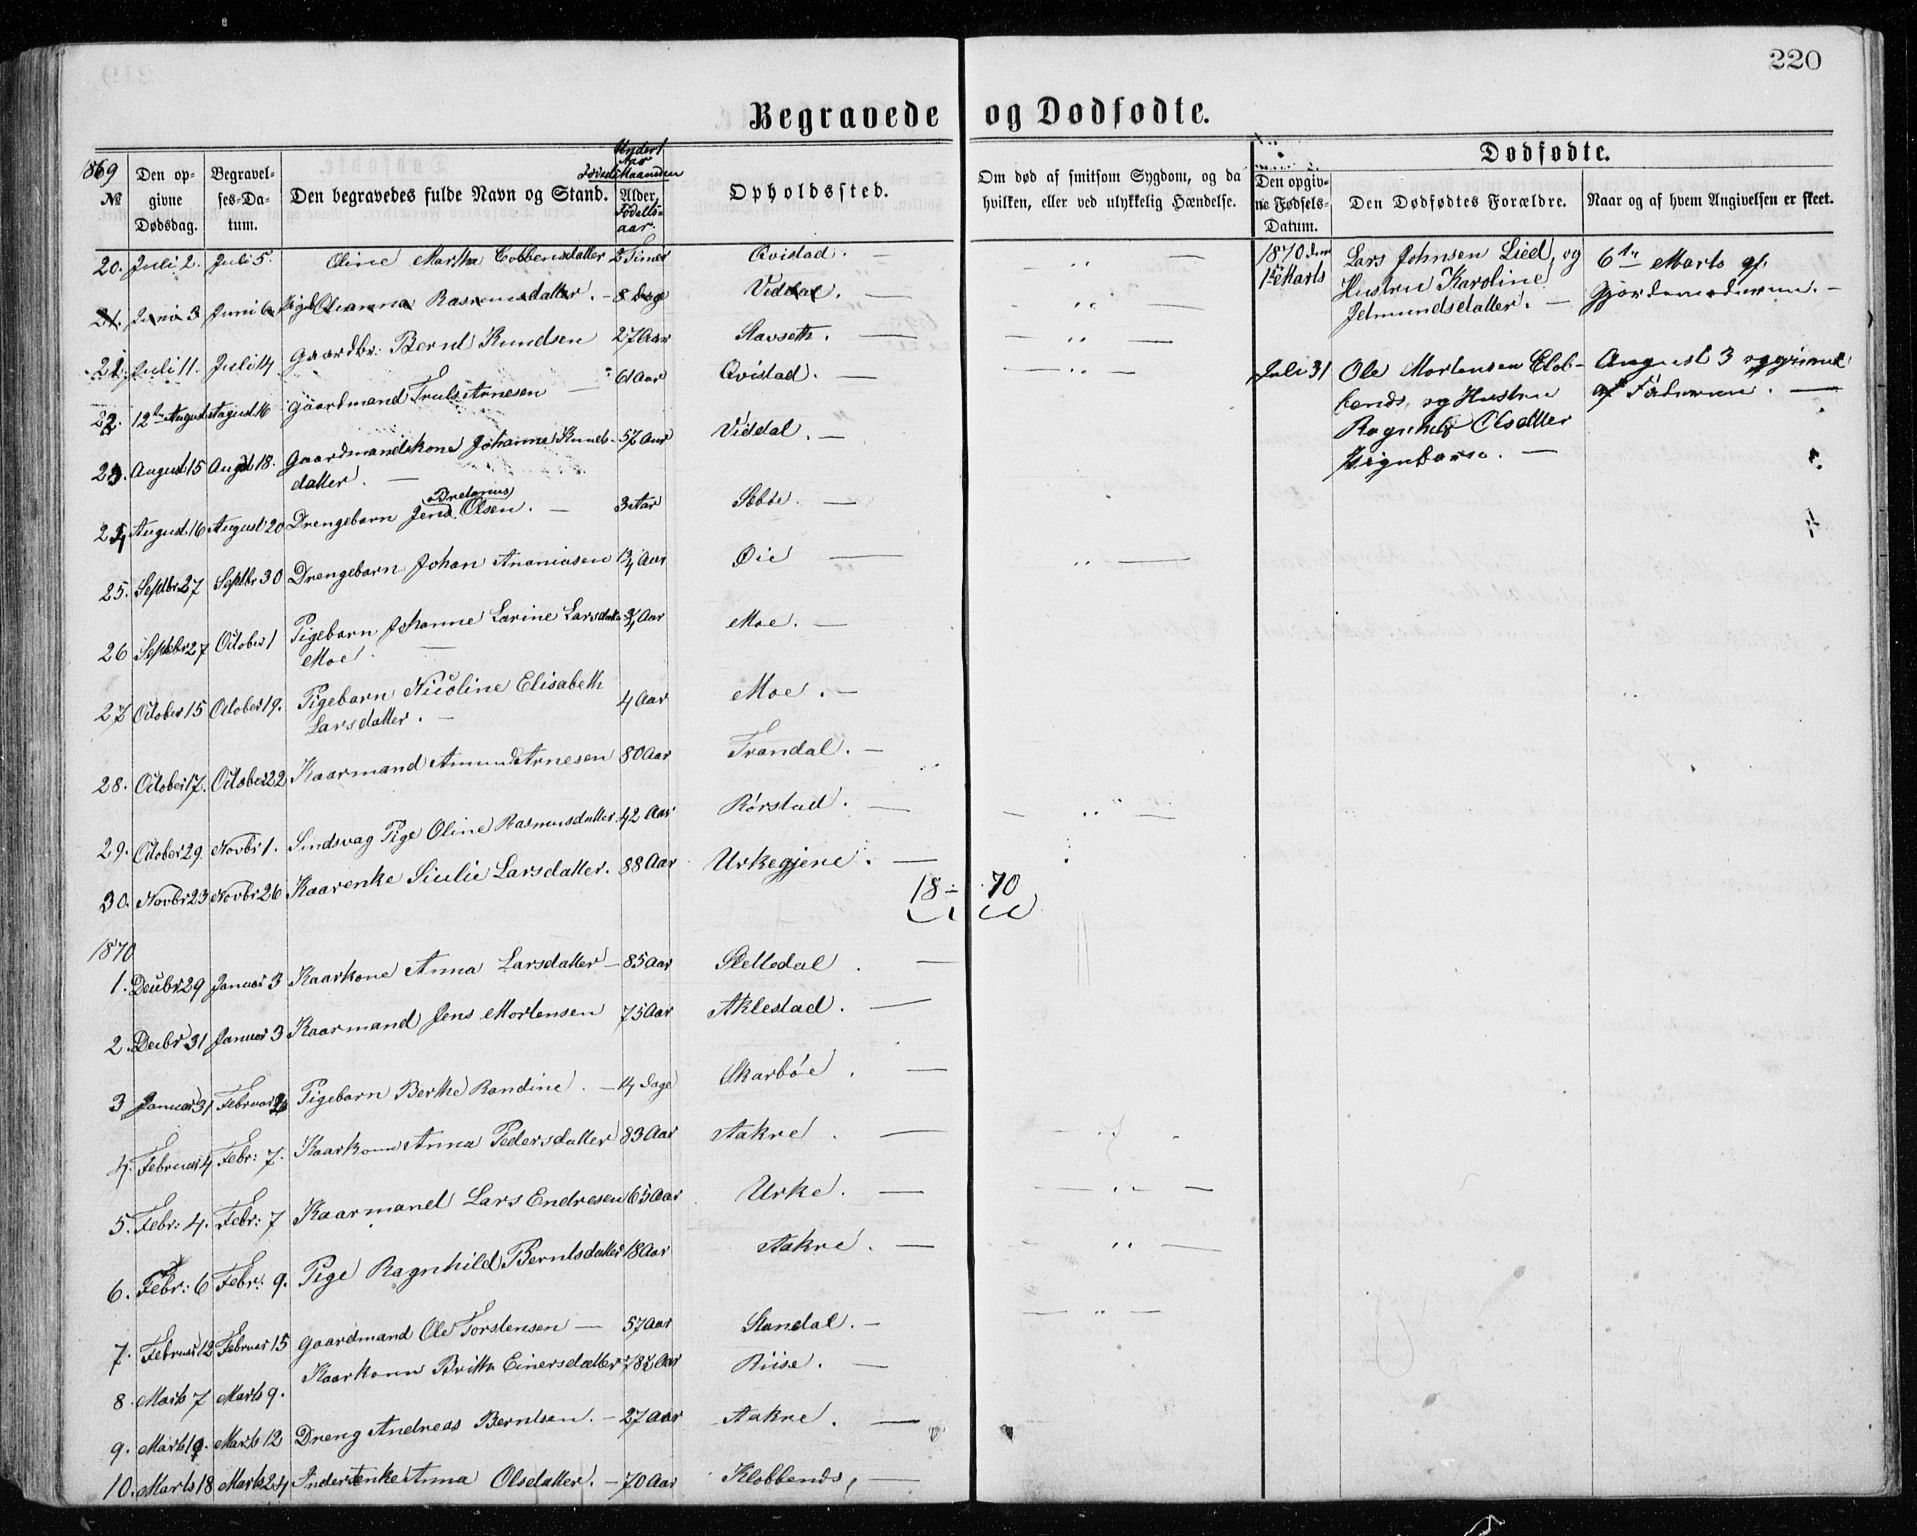 220
Begravede og Dødfødte.
1869
№
Den opgivne Dødsdag.
Begravelses-Datum.
Den begravedes fulde Navn og Stand.
Under 1 Aar
Alder,
Fødselsaar.
Opholdssted.
Om død af smitsom Sygdom, og da hvilken, eller ved ulykkelig Hændelse.
Dødfødte.
Den opgivne Fødsels-Datum.
Den Dødfødtes Forældre.
Naar og af hvem Angivelsen er skeet.
20. Juli 2. Juli 5. Oline Martha Cobbensdatter 2 Timer Qvistad. —
21. Juni 3 Juni 6 Pigeb. Rasmusdatter. — 8 Dage Viddal. —
21. Juli 11. Juli 14 Gaardbr. Bernt Knudsen 27 Aar Stavseth. —
22. 12te August August 16 Gaardmand Truls Arnesen — 61 Aar Qvistad. —
23. August 15 Augst 18. Gaardmandskone Johanne Knuds- 57 Aar Viddal. —
datter. —
Bretanius
24. August 16 August 20 Drengebarn Jens Olsen. — 3 Aar Sæbøe. —
25. Septbr 27 Septbr 30 Drengebarn Johan Ananiasen 1¾ Aar Øie —
26 Septbr 27 October 1 Pigebarn Johanne Larine Larsdatter ¾ Aar Moe. —
Moe. —
27 October 15 October 19. Pigebarn Nicoline Elisabeth 4 Aar Moe. —
Larsdatter. —
28. October 17. October 22 Kaarmand Amund Arnesen 80 Aar Trandal. —
29. October 29. Novbr 1. Sindsvag Pige Oline Rasmusdatter. 42 Aar Rørstad. —
30. Novbr 23 Novbr 26 Kaarenke Siulie Larsdatter. 88 Aar Urkegjerie. —
18 70
1870
1. Decbr 29 Januar 3 Kaarkone Anna Larsdatter — 85 Aar Slettedal. —
2. Decbr 31 Januar 3 Kaarmand Jens Mortensen 75 Aar Aklestad. —
3 Januar 31 Februar Pigebarn Berthe Randine. — 14 Dage Skarbøe. —
4. Februar 4 Febr: 7. Kaarkone Anna Pedersdatter 83 Aar Aakre. —
5. Febr: 4. Febr: 7 Kaarmand Lars Endresen 65 Aar Urke. —
6. Febr: 6 Febr: 9. Pige Ragnhild Berntsdatter 18 Aar Aakre. —
7. Februar 12 Februar 15 Gaardmand Ole Torstensen — 57 Aar Standal. —
8 Marts 7 Marts 9. Kaarkone Brithe Einersdatter 78½ Aar Riise. —
9. Marts Marts 12 Dreng Andreas Berntsen. — 27 Aar Aakre. —
10. Marts 18 Marts 24 Inderstenke Anna Olsdatter. — 70 Aar Klobbends, —
1870 den 1ste Marts
Lars Johnsen Lied, og
Hustru Karoline
Jetmundsdatter. —
6te Marts af
Gjordemoderen. —
Juli 31
Ole Mortensen Klob-
bends, og Hustru
Ragnhild Olsdatter
Pigebarn. —
August 3
af Faderen. —